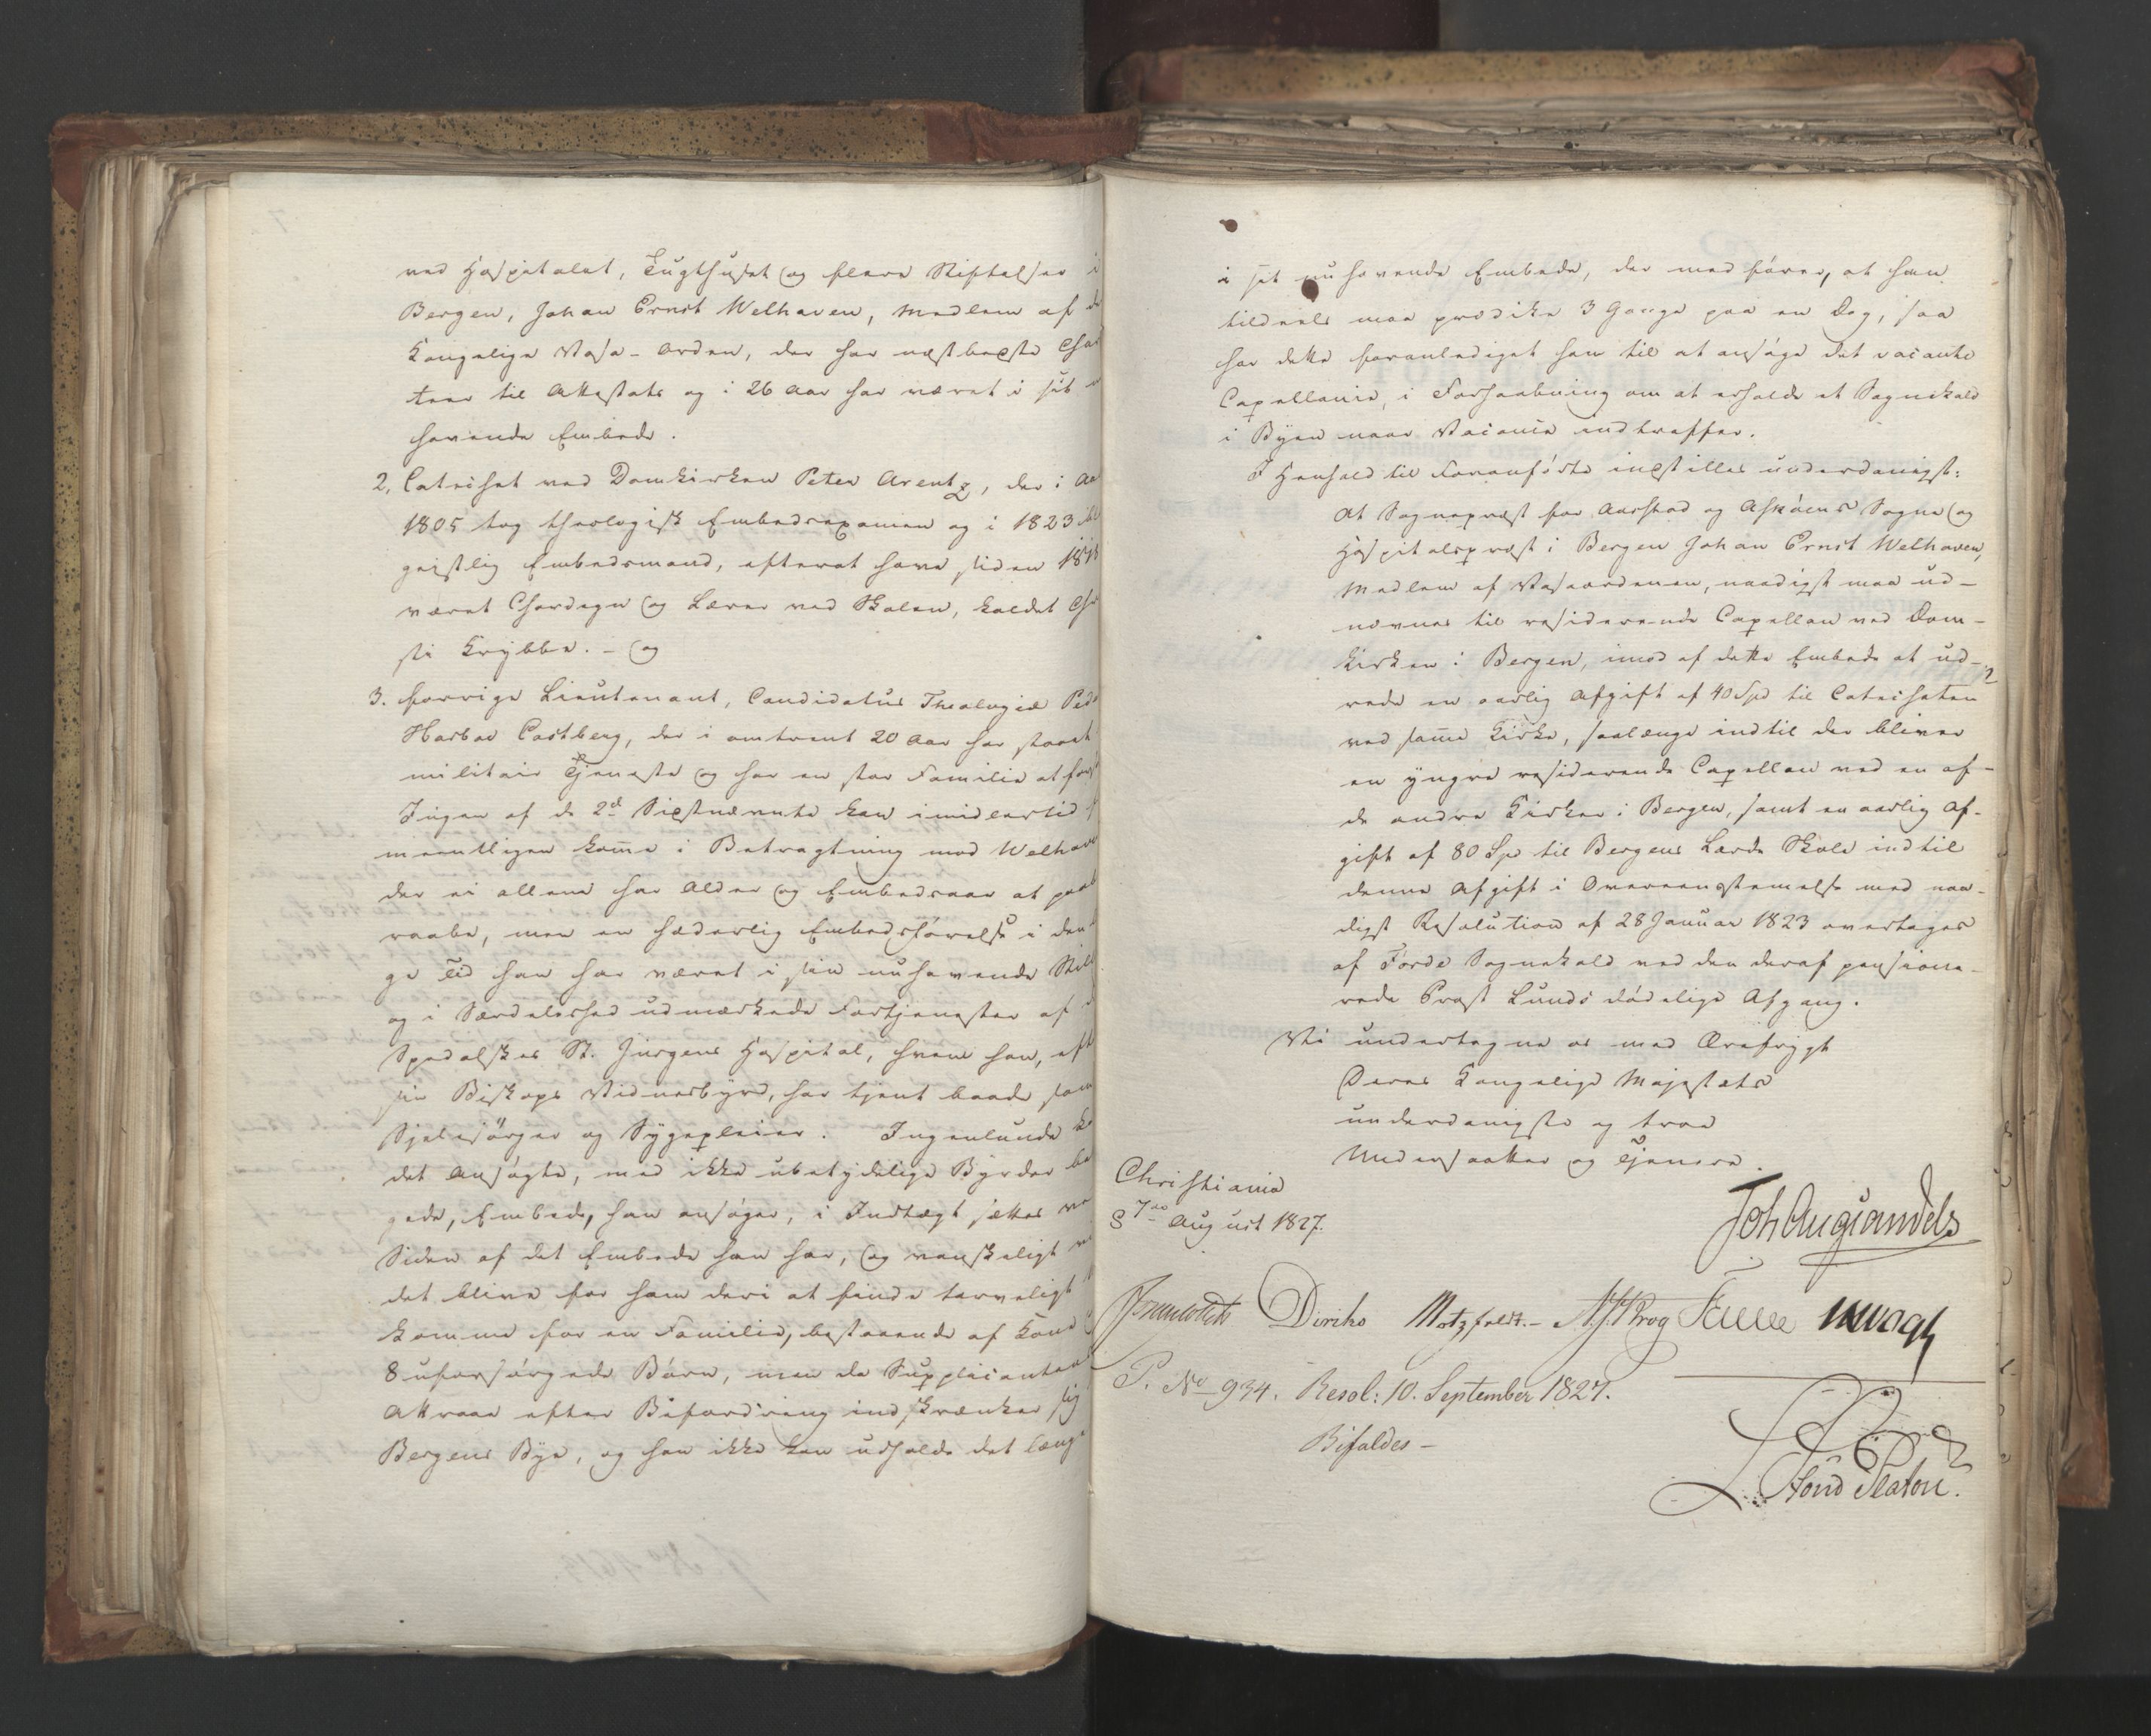 ved Hospitalet, Tugthuset og flere Stiftelser i
Bergen, Johan Ernst Welhaven, Medlem af
Kongelige Wasa-Orden, der har næstbeste Cha
teer til Attestats og i 26 Aar har været i sit
havende Embede.
2, Catechet ved Domkirken Peter Arentz, der i
1805 tog theologisk Embedsexamen og i 1823
geistlig Embedsmand, efterat have siden
været Chordegn og Lærer ved Skolen, kaldet
sti Krybbe. - og
3. forrige Lieutenant, Candidatus Theologiæ
Harboe Castberg, der i omtrent 20 Aar har staaet
militair Tjeneste og har en stor Familie at
Ingen af de 2de Sidstnævnte kan imidlertid
meentligen komme i Betragtning mod
der ei allene har Alder og Embedsaar at
raabe, men en hæderlig Embedsførelse i
ge Tid han har været i sin nuhavende
og i Særdeleshed udmærkede Fortjenester af
Spedalskes St. Jürgens Hospital, hvem han,
sin Biskops Vidnesbyrd, har tjent baade som
Sjelesörger og Sygepleier. Ingenlunde
det ansøgte, med ikke ubetydelige Byrder
gede, Embede, han ansøger, i Indtægt sættes
Siden af det Embede han har, og vanskeligt
det blive for ham deri at finde tarveligt
komme for en Familie, bestaaende af Kone
8 uforsørgede Børn, men da Supplicanten
Attraae efter Befordring indskrænker sig
Bergens Bye, og han ikke kan udholde det
i sit nuhavende Embede, der medfører, at han
tildeels maa prædike 3 Gange paa en Dag, saa
har dette foranlediget ham til at ansøge det vacante
Capellanie, i Forhaabning om at erholde et Sognekald
i Byen naar Vacance indtræffer.
I Henhold til Foranførte indstilles underdanigst:
At Sognepræst for Aarstad og Askøens Sogne og
Hospitalspræst i Bergen Johan Ernst Welhaven,
Medlem af Wasaordenen, naadigst maa ud-
nævnes til residerende Capellan ved Dom-
kirken i Bergen, imod af dette Embede at ud-
rede en aarlig Afgift af 40 Spd til Catecheten
ved samme Kirke, saalænge indtil der bliver
en yngre residerende Capellan ved en af
de andre Kirker i Bergen, samt en aarlig Af-
gift af 80 Spd til Bergens Lærde Skole indtil
denne Afgift i Overeenstemmelse med naa-
digst Resolution af 28 Januar 1823 overtages
af Førde Sognekald ved den deraf pensione-
rede Provst Lunds dødelige Afgang.
Vi undertegne os med Ærefrygt
Deres Kongelige Majestæts
underdanigste og troe
Undersaatter og Tjenere.
Christiania
8 August 1827.
Joh Aug Sandels
Diriks Motzfeldt. -
P. No 934. Resol: 10. September 1827.
Bifaldes -